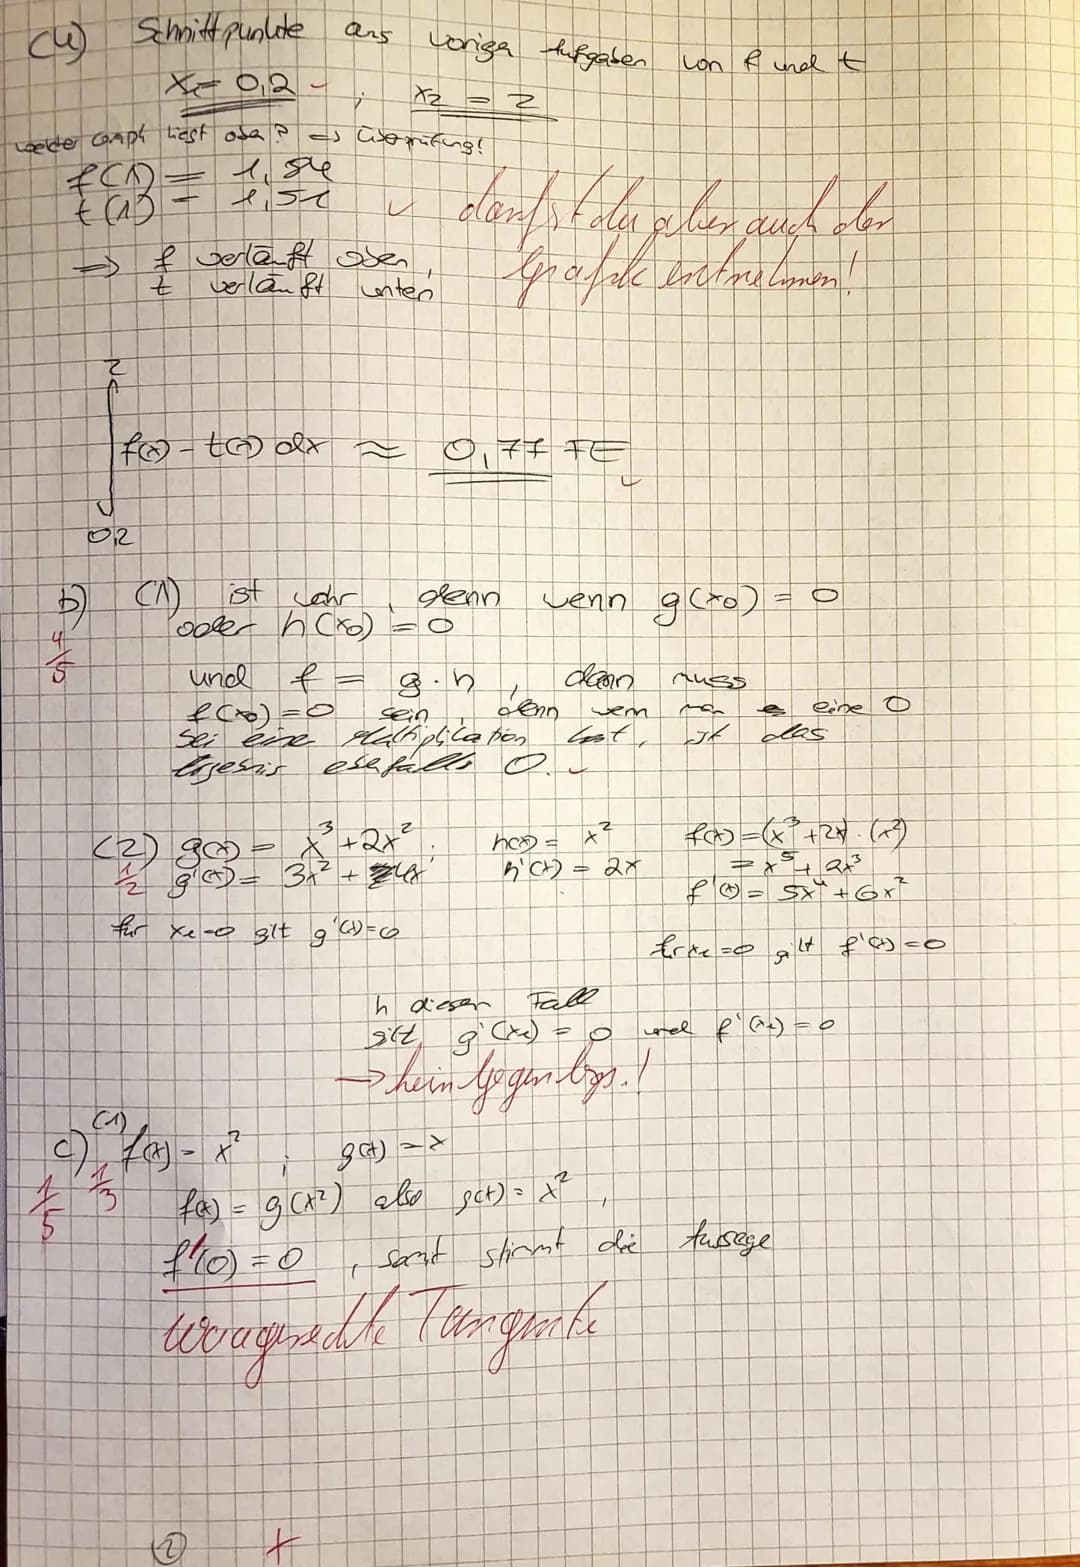 (4) Schnittpunkte aus voriger Aufgaben von f und t
x₁= 0,2 ; x₂ = 2
welcher Graph liegt oben? => Überprüfung!
f(1) = 1,54
t(1) = 1,51 ✓
darfst du aber auch der
Grafik entnehmen!
=> f verläuft oben,
t verläuft unten
2
∫ f(x) - t(x) dx ≈ 0,77 FE ✓
0,2
b) (1) ist wahr, denn wenn g(x₀) = 0
4/5
oder h(x₀) = 0
und f = g · h, dann muss
f(x₀) = 0 sein, denn wenn man eine 0
bei eine Multiplikation hat, ist das
Ergebnis ebenfalls 0. ✓
(2) g(x) = x³ + 2x² ; h(x) = x² f(x) = (x³ + 2x) · (x²)
1/2 g'(x) = 3x² + 4x h'(x) = 2x = x⁵ + 2x³
f'(x) = 5x⁴ + 6x²
für x₁=0 gilt g'(x)=0
für x₁=0 gilt f'(x)=0
In diesem Fall
gilt g'(x₁) = 0 und f'(x₁) = 0
→ kein Gegenbsp.!
c) (1) f(x) = x² ; g(x) = x
1/5 1/3
f(x) = g(x²) also g(x) = x²,
f'(0) = 0, somit stimmt die Aussage
waagerechte Tangente
2 +